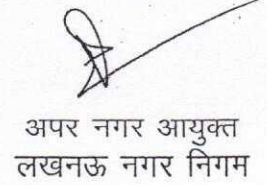 अपर नगर आयुक्त
लखनऊ नगर निगम